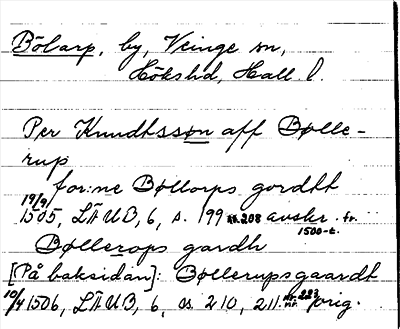 Bölarp, by, Veinge sn,
Höks hd, Hall. l.
Per Knudhsson aff Bølle-
rup
for:ne Bøllorps gordtt
19/9 1505, LÄUB, 6, s. 199 nr. 208 avskr. fr. 1500-t.
Bøllerops gardh
[På baksidan]: Bøllerupsgaardt
10/4 1506, LÄUB, 6, s. 210, 211. nr. 223 orig.